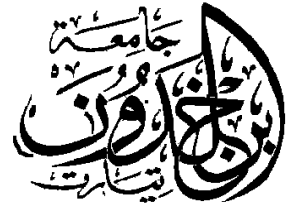 جَامِعَة
ابن خلدُون
تيارت